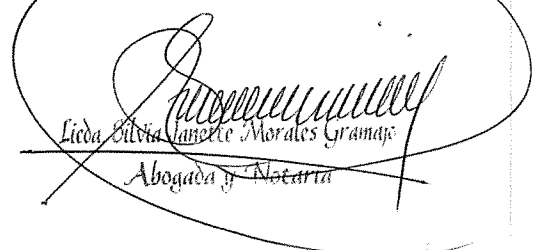 Licda Silvia Janette Morales Gramajo
Abogada y Notaria